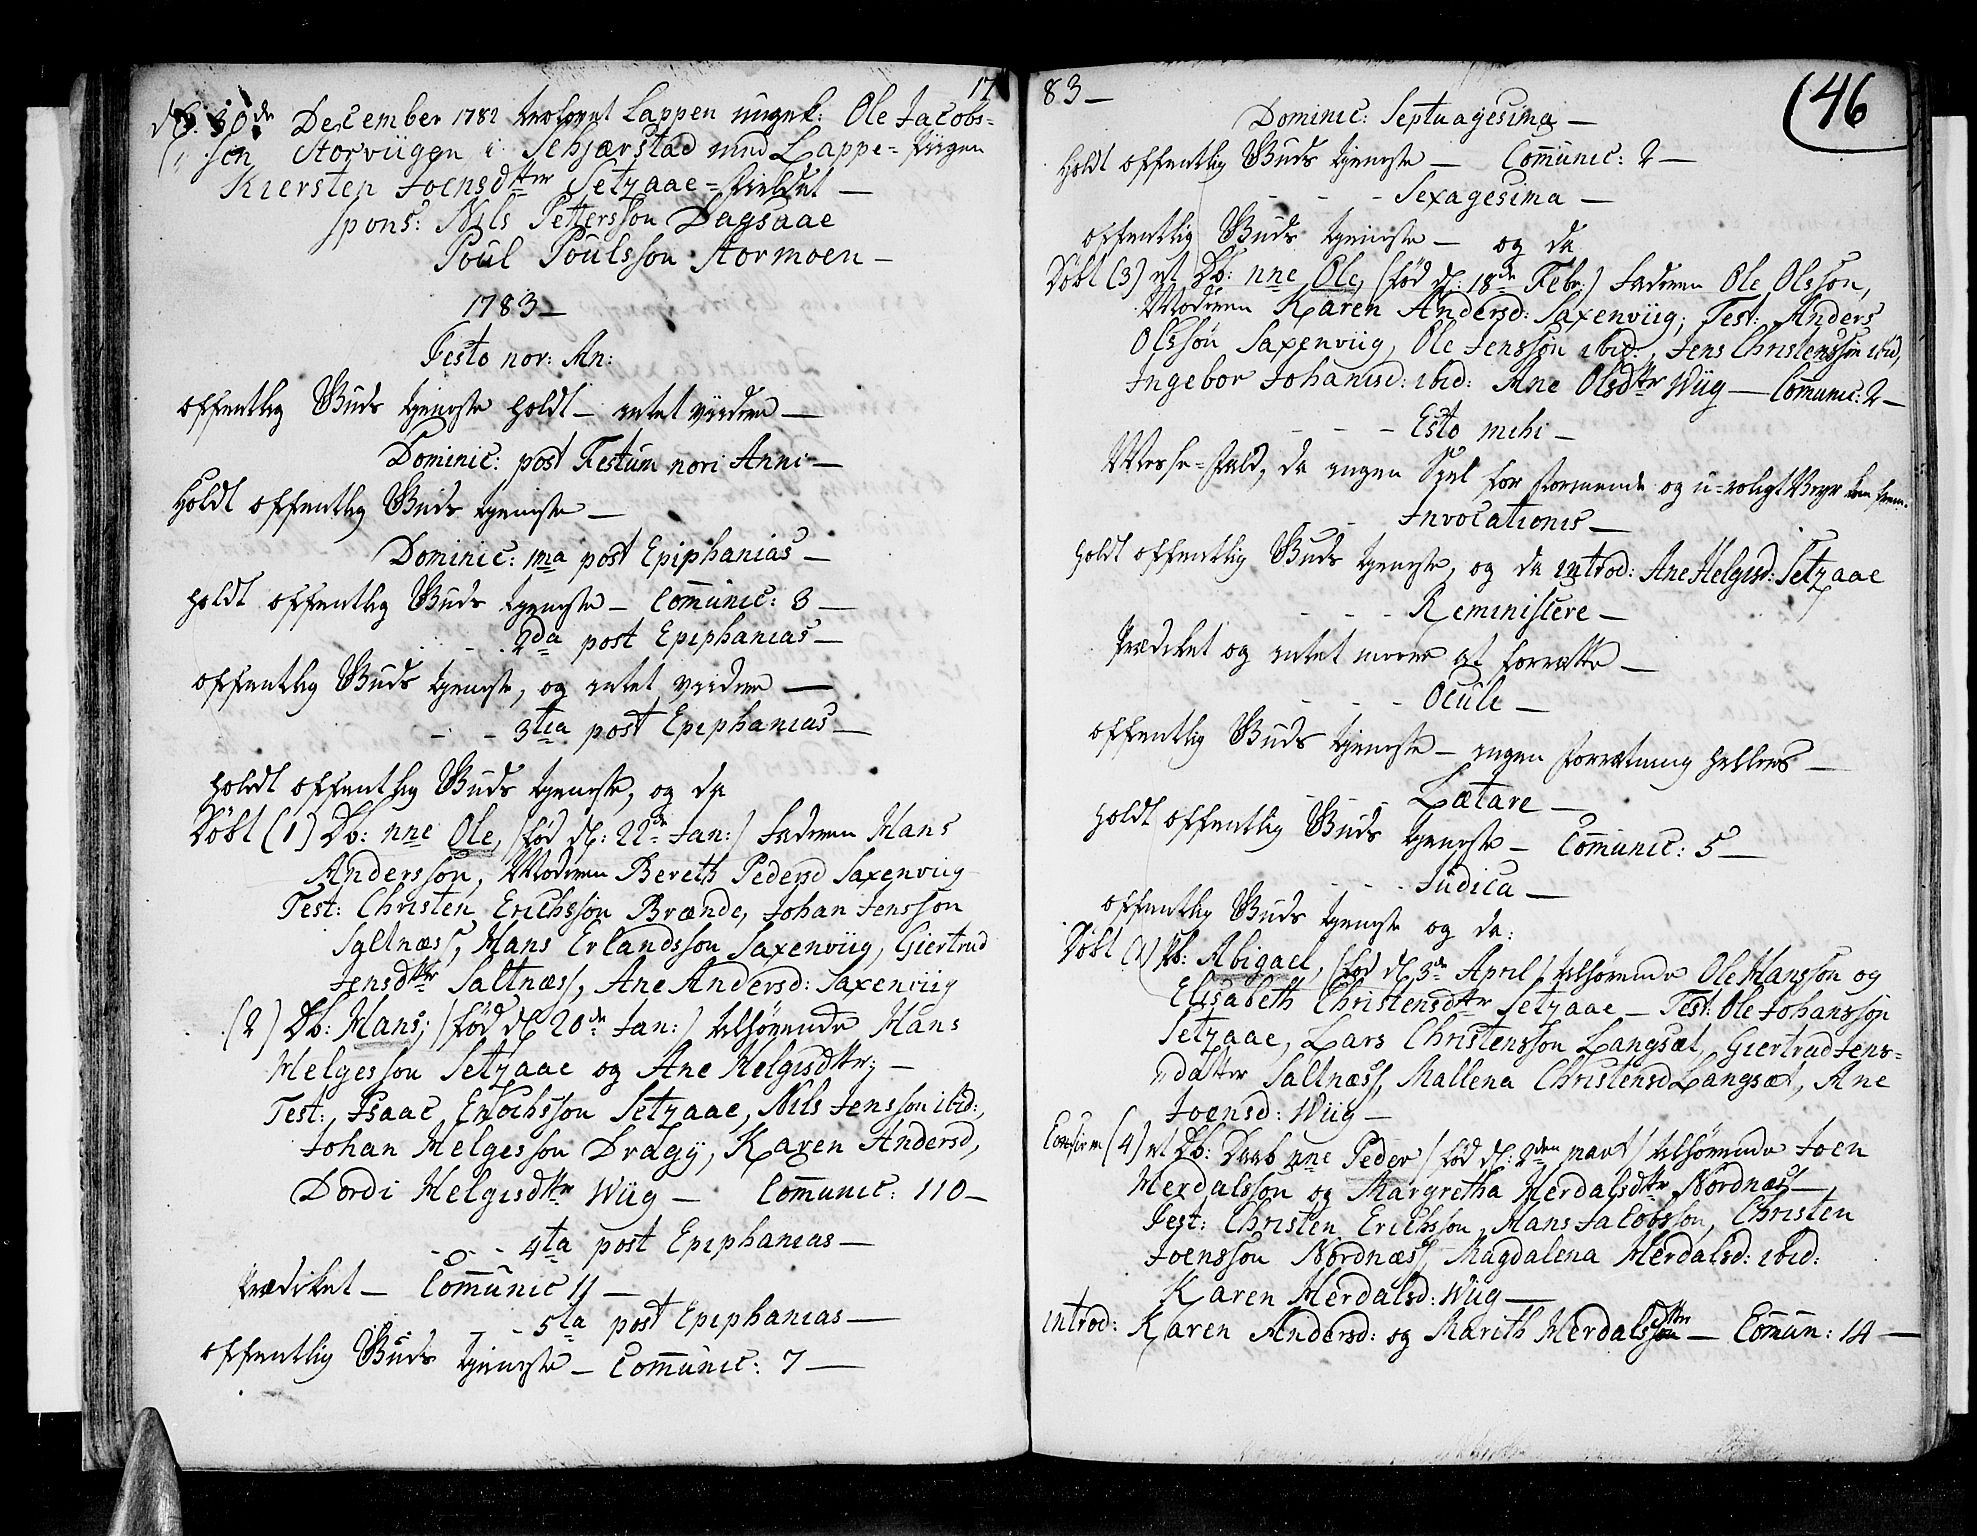 17
d: 30de December 1782 trolovet Lappen ungek: Ole Jacobs=
sen Storviigen i Schjærstad med Lappe=Piigen
Kiersten Joensdttr Setzaae=Fieldet —
spons: Nils Pettersson Dagsaae
Poul Poulsson Stormoen —
1783 —
Festo nov: An:
offentlig Guds tjeneste holdt — intet viidere —
Dominic: post Festum novi Anni —
Holdt offentlig Guds tjeneste —
Dominic: 1ma post Epiphanias —
holdt offentlig Guds tjeneste — Communic: 3 —
- - 2da post Epiphanias —
offentlig Guds tjeneste, og intet viidere —
- - 3tia post Epiphanias —
holdt offentlig Guds tjeneste, og da
Döbt (1) Db: nne Ole, /fød d: 22de Jan:/ Faderen Hans
Andersson, Moderen Bereth Pedersd Saxenviig
Test: Christen Erichsson Brænde, Johan Jensson
Saltnæss, Hans Erlandsson Saxenviig, Giertrud
Jensdttr Saltnæss, Ane Andersd: Saxenviig
(2) Db: Hans; /fød d 20de Jan:/ tilhørende Hans
Helgesson Setzaae og Ane Helgisdttr; —
Test: Isaac Enochsson Setzaae, Nils Jensson ibid:,
Johan Helgesson Dragy, Karen Andersd,
Dordi Helgisdttr Wiig — Communic: 110 —
- - - 4ta post Epiphanias —
Prædiket — Communic 11 —
- - 5ta post Epiphanias —
offentlig Guds tjeneste — Communic: 7 —
83 —
(46
Dominic: Septuagesima —
Holdt offentlig Guds tjeneste — Communic: 2 —
- - - Sexagesima —
offentlig Guds tjeneste — og da
Döbt (3) et Db: nne Ole, /fød d: 18de Febr:/ Faderen Ole Olsson,
Moderen Karen Andersd: Saxenviig; Test: Anders
Olsson Saxenviig, Ole Jensson ibid:, Jens Christensson ibid,
Ingebor Johanisd: ibid: Ane Olsdttr Wiig — Communic: 2 —
- - - Esto mihi —
Messe=Fald, da ingen Siel for stormende og u=roligt Veyr kom frem.
- Invocationis —
holdt offentlig Guds tjeneste, og da introd: Ane Helgisd: Setzaae
- - - Reminiscere —
Prædiket og intet meere at forrette —
- - - Oculi —
offentlig Guds tjeneste — ingen forretning hellers —
- - - Lætare —
holdt offentlig Guds tjeneste — Communic: 5 —
- - - Judica —
offentlig Guds tjeneste og da:
Döbt (1) Pb: Abigael, /fød d 3de April/ tilhørende Ole Hansson og
Elisabeth Christensdttr Setzaae — Test: Ole Johansson
Setzaae, Lars Christensson Langsæt, Giertrud Jens=
datter Saltnæss, Mallena Christensd Langsæt, Ane
Joensd: Wiig —
Confirm (4) et Db: Daab nne Peder /fød d: 2den Mart/ tilhørende Joen
Herdalsson og Margretha Herdalsdttr Nordnæss —
Test: Christen Erichsson, Hans Jacobsson, Christen
Joensson Nordnæss, Magdalena Herdalsd: ibid:
Karen Herdalsd: Wiig —
introd: Karen Andersd: og Marith Herdalsdttr — Commun: 14 —